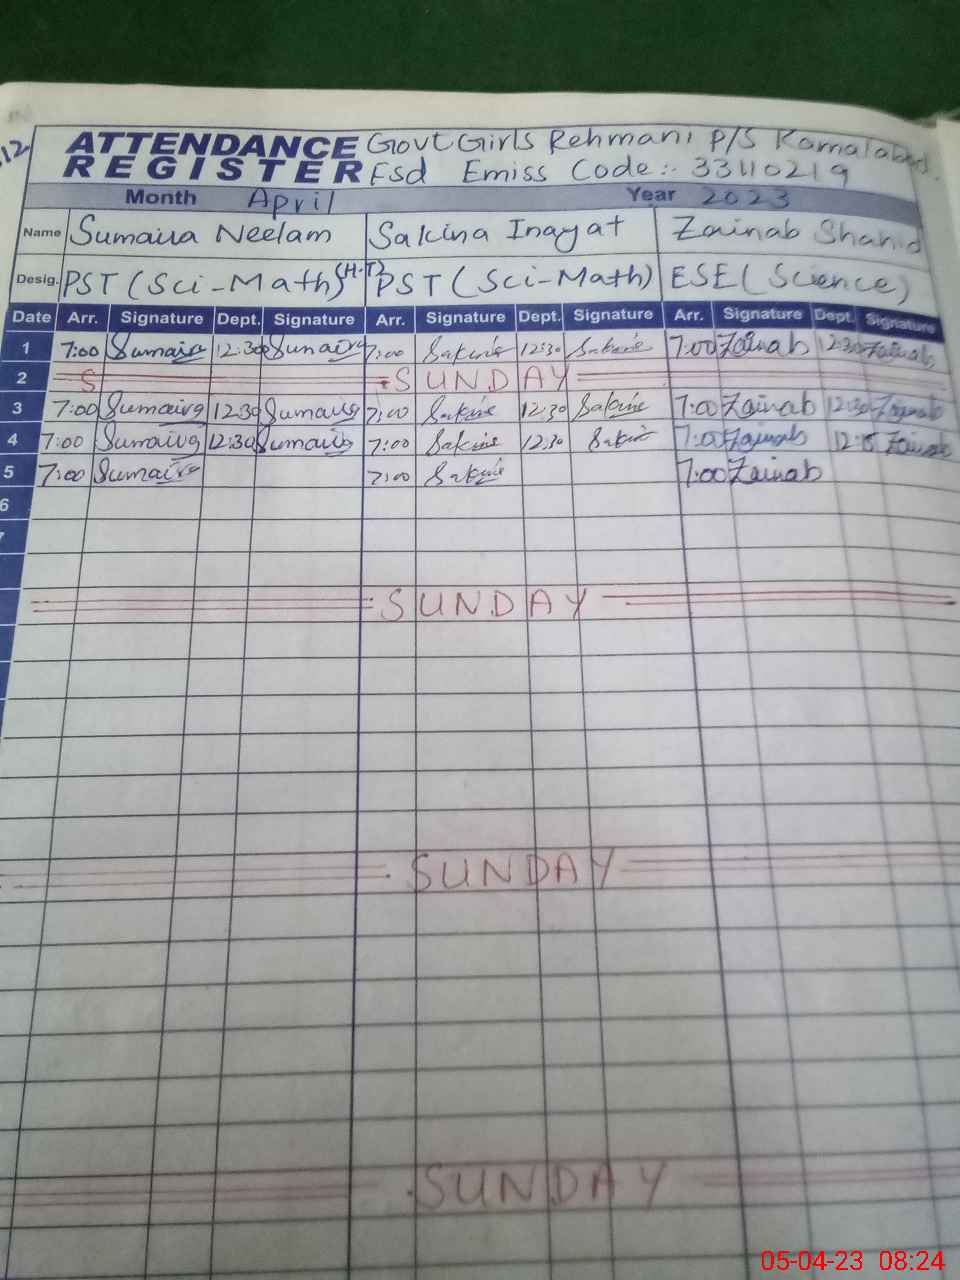 12
ATTENDANCE REGISTER
Govt Girls Rehmani P/S Kamalabad.
Fsd Emiss Code:- 33110219
Month April Year 2023
Name Sumaira Neelam Sakina Inayat Zainab Shahid
Desig. PST (Sci-Math) (H.T) PST (Sci-Math) ESE (Science)
Date Arr. Signature Dept. Signature Arr. Signature Dept. Signature Arr. Signature Dept. Signature
1 7:00 Sumaira 12:30 Sumaira 7:00 Sakina 12:30 Sakina 7:00 Zainab 12:30 Zainab
2 S SUNDAY
3 7:00 Sumaira 12:30 Sumaira 7:00 Sakina 12:30 Sakina 7:00 Zainab 12:30 Zainab
4 7:00 Sumaira 12:30 Sumaira 7:00 Sakina 12:30 Sakina 7:00 Zainab 12:15 Zainab
5 7:00 Sumaira 7:00 Sakina 7:00 Zainab
6
7
SUNDAY
SUNDAY
SUNDAY
05-04-23 08:24